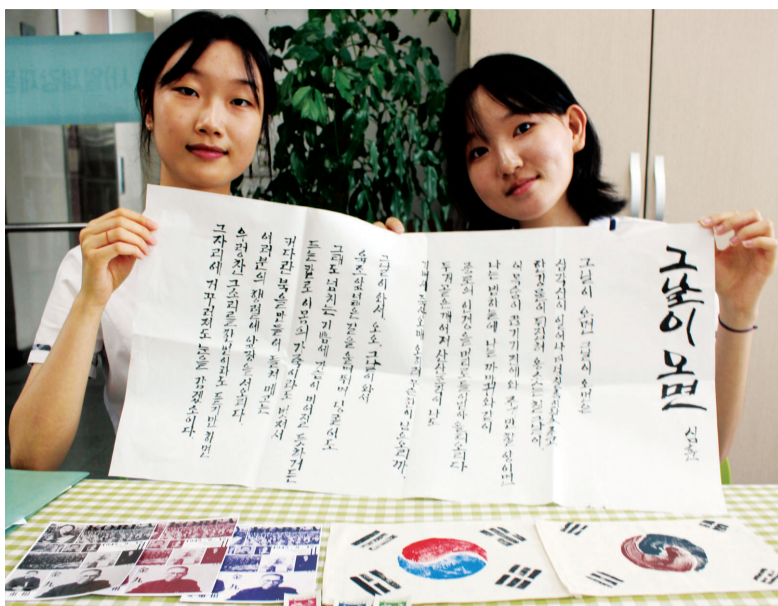 그날이 오면
심훈
그날이 오면 그날이 오면은
삼각산이 일어나 더덩실 춤이라도 추고
한강물이 뒤집혀 용솟음칠 그날이,
이 목숨이 끊기기 전에 와 주기만 할 양이면
나는 밤하늘에 나는 까마귀와 같이
종로의 인경을 머리로 들이받아 울리오리다
두개골은 깨어져 산산조각이 나도
기뻐서 죽사오매 오히려 무슨 한이 남으오리까.
그날이 와서, 오오 그날이 와서
육조 앞 넓은 길을 울며 뛰며 뒹굴어도
그래도 넘치는 기쁨에 가슴이 미어질 듯하거든
드는 칼로 이 몸의 가죽이라도 벗겨서
커다란 북을 만들어 들쳐 메고는
여러분의 행렬에 앞장을 서오리다.
우렁찬 그 소리를 한 번이라도 듣기만 하면
그 자리에 거꾸러져도 눈을 감겠소이다.
金九